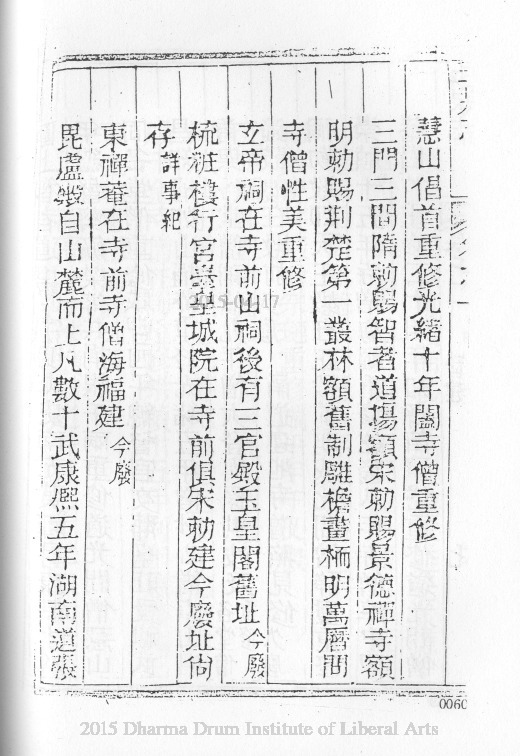 慧山倡首重修光緒十年闔寺僧重修
三門三間隋勅賜智者道塲額宋勅賜景德禪寺額
明勅賜荆楚第一叢林額舊制雕檐畫栭明萬曆間
寺僧性美重修
玄帝祠在寺前山祠後有三官殿玉皇閣舊址今廢
梳粧樓行宫臺皇城院在寺前俱宋勅建今廢址尙
存詳事紀
東禪菴在寺前寺僧海福建今廢
毘盧殿自山麓而上凡數十武康熈五年湖南道張
0060
2015-01-17
2015 Dharma Drum Institute of Liberal Arts